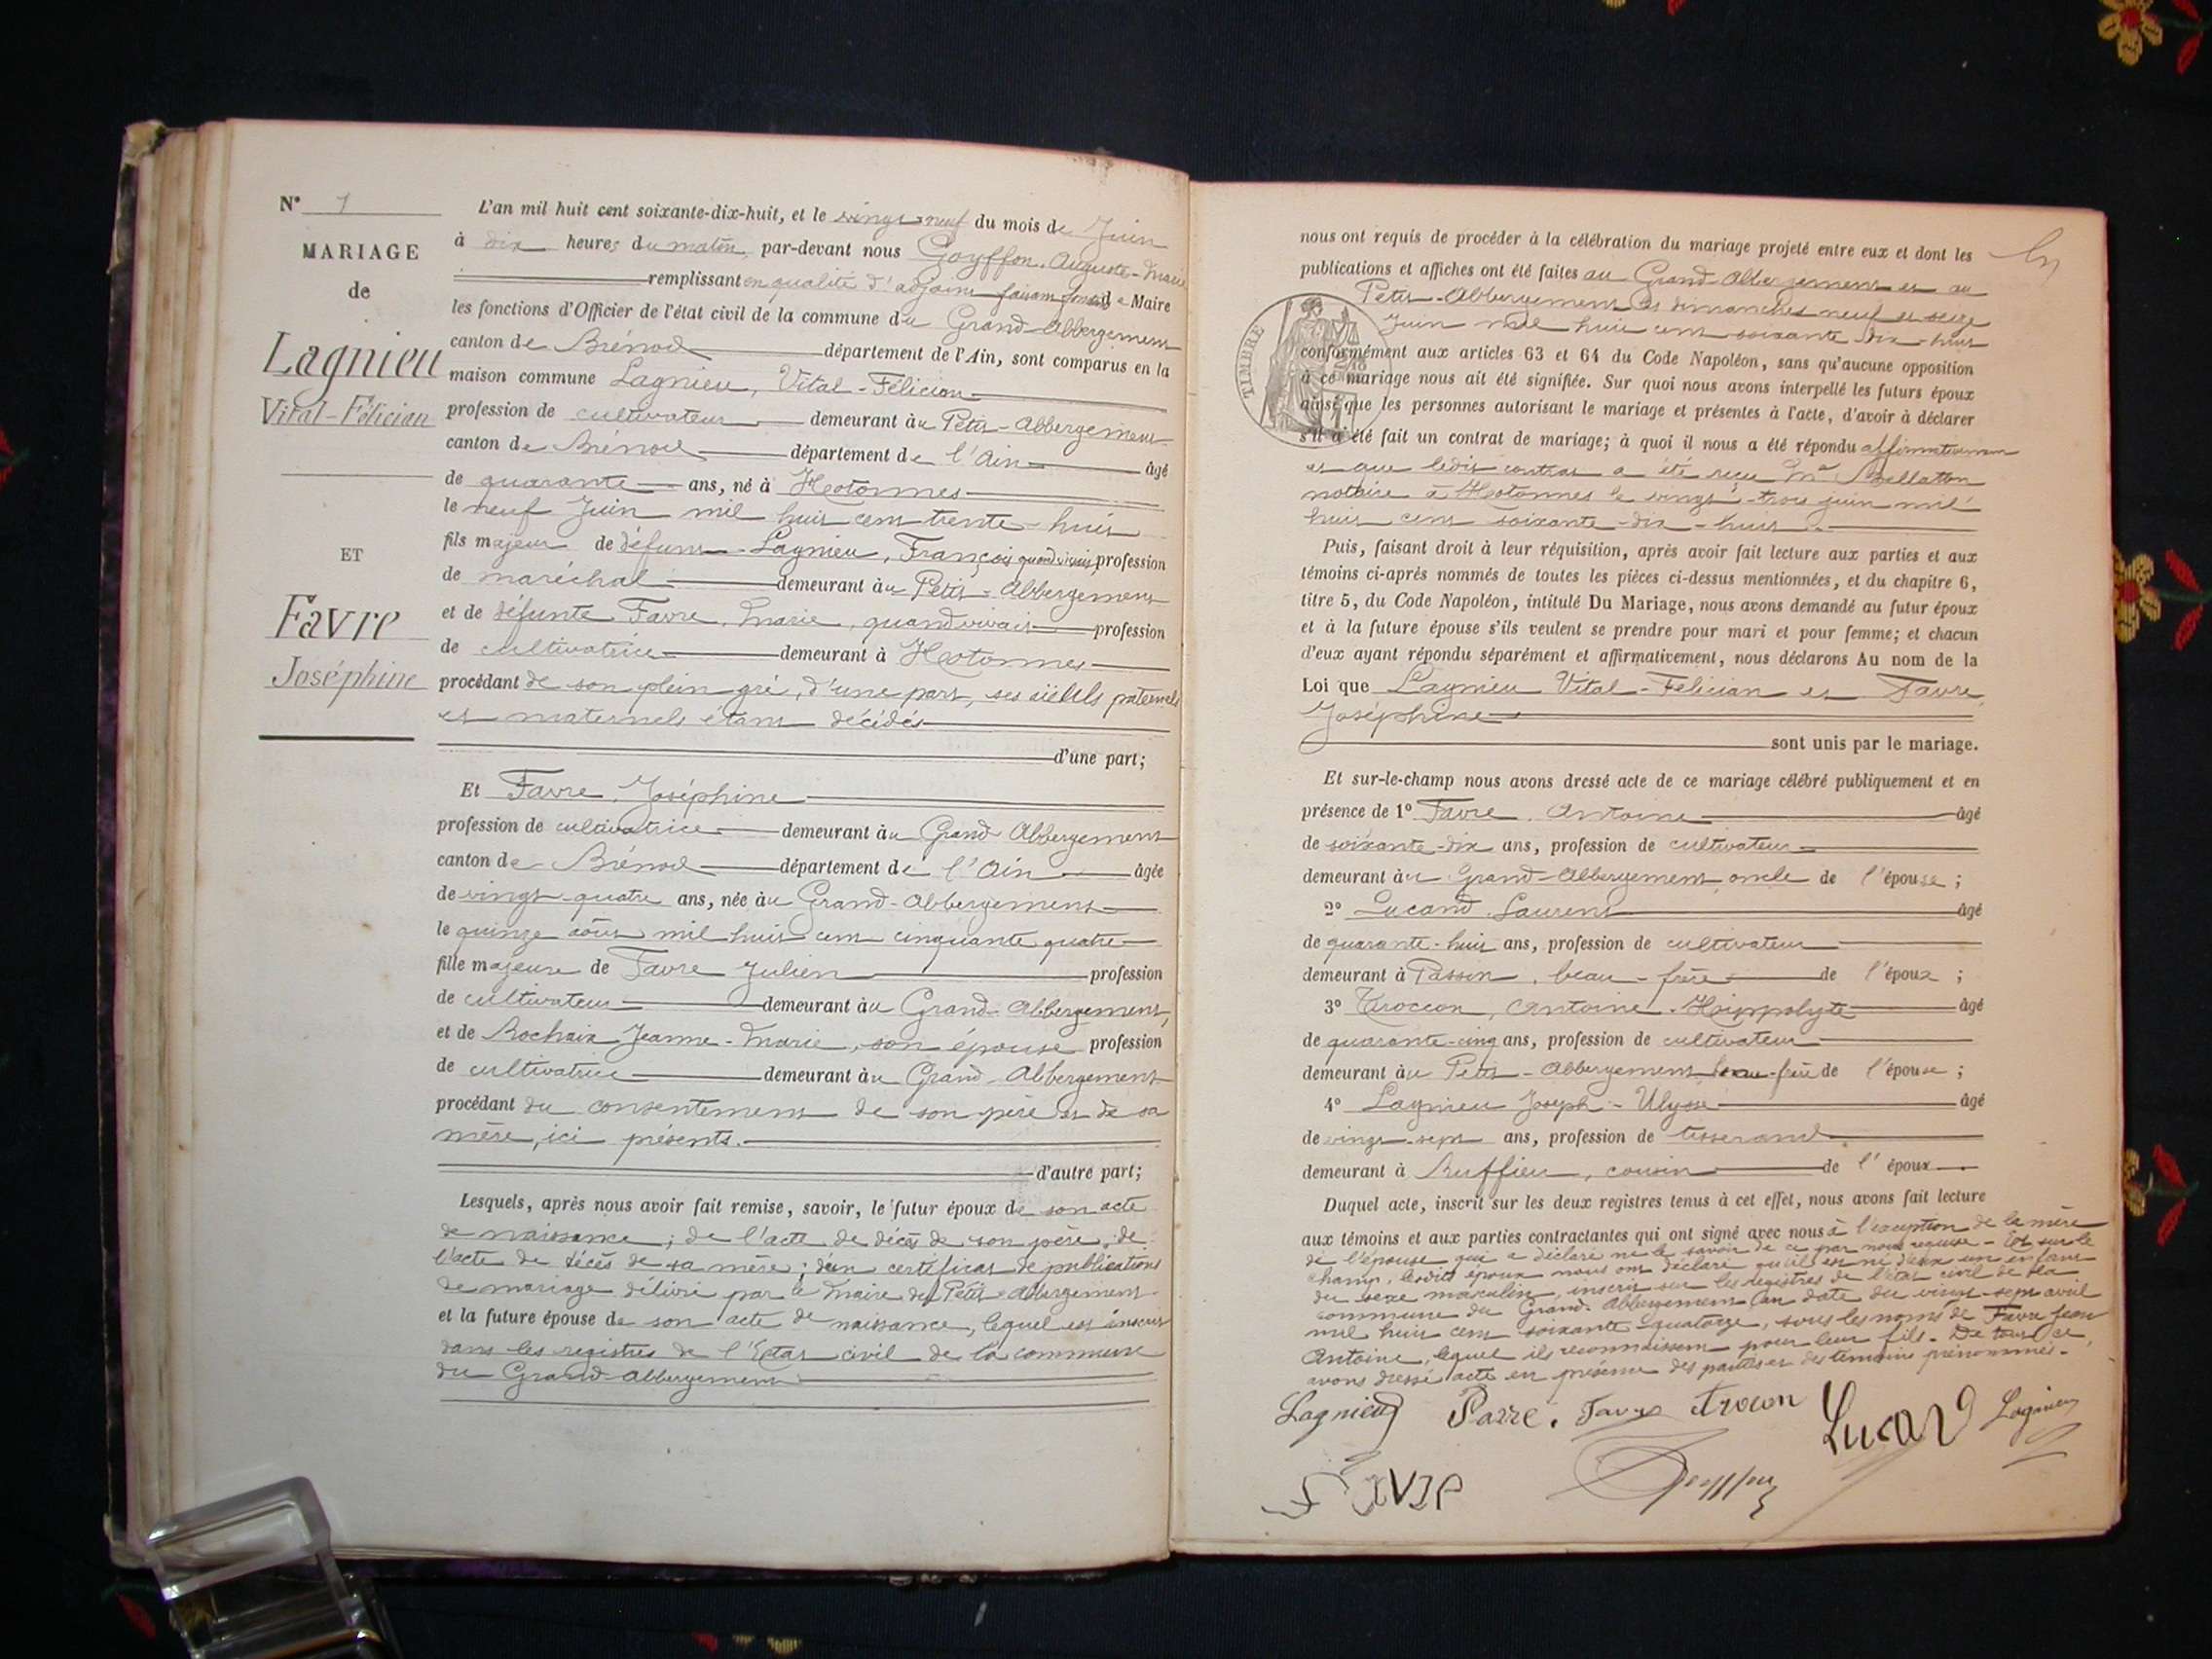 N° 1
MARIAGE
de
Lagnieu
Vital-Félician
ET
Favre
Joséphine
L'an mil huit cent soixante-dix-huit, et le vingt-neuf du mois de Juin
à dix heures du matin, par-devant nous Goyffon, Auguste-Marie
remplissant en qualité d'adjoint faisant de Maire
les fonctions d'Officier de l'état civil de la commune du Grand-Abbergement
canton de Brénod département de l'Ain, sont comparus en la
maison commune Lagnieu, Vital-Félician
profession de cultivateur demeurant au Petit-Abbergement
canton de Brénod département de l'Ain âgé
de quarante ans, né à Hotonnes
le neuf Juin mil huit cent trente-huit
fils majeur de défunt Lagnieu, François quand vivait profession
de maréchal demeurant au Petit-Abbergement
et de défunte Favre, Marie, quand vivait profession
de cultivatrice demeurant à Hotonnes
procédant de son plein gré, d'une part, ses aïeuls paternels
et maternels étant décédés
d'une part;
Et Favre, Joséphine
profession de cultivatrice demeurant au Grand-Abbergement
canton de Brénod département de l'Ain âgée
de vingt-quatre ans, née au Grand-Abbergement
le quinze août mil huit cent cinquante quatre
fille majeure de Favre Julien profession
de cultivateur demeurant au Grand-Abbergement,
et de Rochaix Jeanne-Marie, son épouse profession
de cultivatrice demeurant au Grand-Abbergement
procédant du consentement de son père et de sa
mère, ici présents.
d'autre part;
Lesquels, après nous avoir fait remise, savoir, le futur époux de son acte
de naissance; de l'acte de décès de son père; de
l'acte de décès de sa mère; d'un certificat de publications
de mariage délivré par le Maire du Petit-Abbergement
et la future épouse de son acte de naissance, lequel est inscrit
dans les registres de l'Etat civil de la commune
du Grand-Abbergement
nous ont requis de procéder à la célébration du mariage projeté entre eux et dont les
publications et affiches ont été faites au Grand-Abbergement et au
Petit-Abbergement les dimanches neuf et seize
Juin mil huit cent soixante dix-huit
TIMBRE
conformément aux articles 63 et 64 du Code Napoléon, sans qu'aucune opposition
à ce mariage nous ait été signifiée. Sur quoi nous avons interpellé les futurs époux
ainsi que les personnes autorisant le mariage et présentes à l'acte, d'avoir à déclarer
s'il a été fait un contrat de mariage; à quoi il nous a été répondu affirmativement
et que ledit contrat a été reçu Me
notaire à Hotonnes le vingt-trois juin mil
huit cent soixante-dix-huit
Puis, faisant droit à leur réquisition, après avoir fait lecture aux parties et aux
témoins ci-après nommés de toutes les pièces ci-dessus mentionnées, et du chapitre 6,
titre 5, du Code Napoléon, intitulé Du Mariage, nous avons demandé au futur époux
et à la future épouse s'ils veulent se prendre pour mari et pour femme; et chacun
d'eux ayant répondu séparément et affirmativement, nous déclarons Au nom de la
Loi que Lagnieu Vital-Félician et Favre,
Joséphine
sont unis par le mariage.
Et sur-le-champ nous avons dressé acte de ce mariage célébré publiquement et en
présence de 1° Favre, Antoine âgé
de soixante-dix ans, profession de cultivateur
demeurant au Grand-Abbergement oncle de l'épouse;
2° Lucand Laurent âgé
de quarante-huit ans, profession de cultivateur
demeurant à Passin, beau-frère de l'époux;
3° Trocon, Antoine-Hippolyte âgé
de quarante-cinq ans, profession de cultivateur
demeurant au Petit-Abbergement beau-frère de l'épouse;
4° Lagnieu Joseph-Ulysse âgé
de vingt-sept ans, profession de tisserand
demeurant à Ruffieu, cousin de l'époux
Duquel acte, inscrit sur les deux registres tenus à cet effet, nous avons fait lecture
aux témoins et aux parties contractantes qui ont signé avec nous à l'exception de la mère
de l'épouse qui a déclaré ne le savoir de ce par nous requise - Et sur le
champ, lesdits époux nous ont déclaré qu'il est né d'eux un enfant
du sexe masculin, inscrit sur les registres de l'état civil de la
commune du Grand-Abbergement en date du vingt-sept avril
mil huit cent soixante quatorze, sous les noms de Favre Jean
Antoine, lequel ils reconnaissent pour leur fils. De tout ce
avons dressé acte en présence des parties et des témoins prénommés.
Lagnieu Favre Trocon Lucand Lagnieu
Goyffon